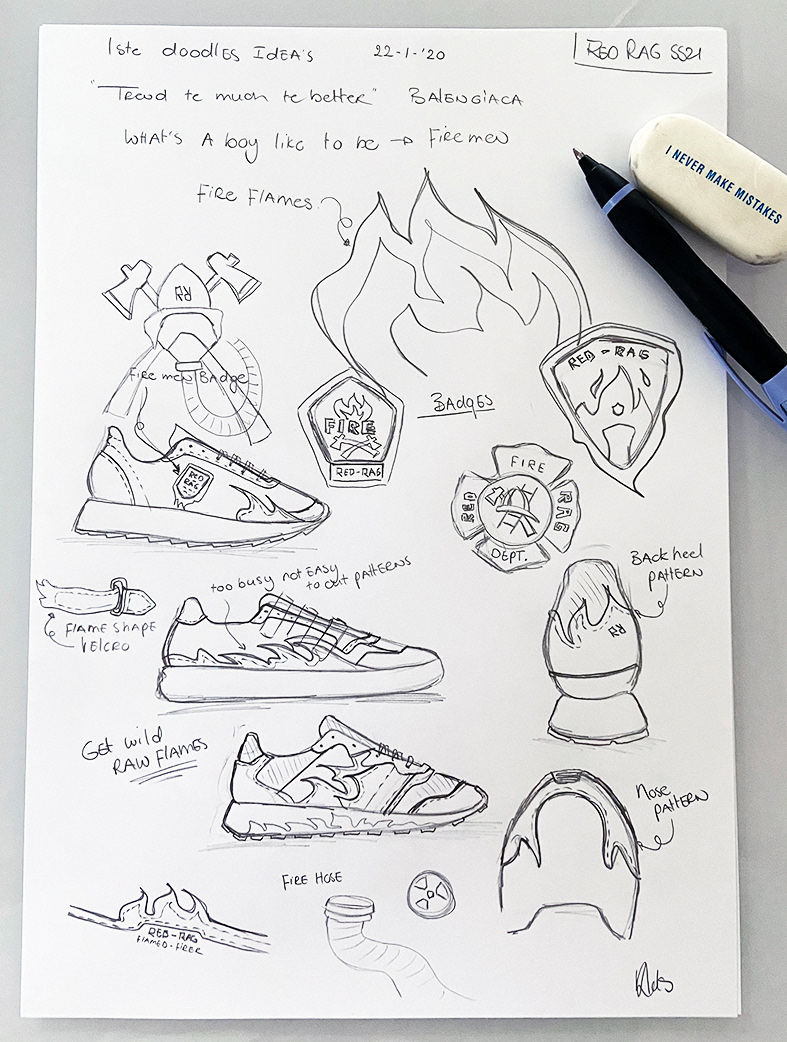 1ste doodles IDEA's 22-1-'20
RED RAG SS21
"Trend te much te better" BALENCIAGA
WHAT'S A boy like to be → Firemen
FiRE FLAMES
I NEVER MAKE MISTAKES
RR
Fire men Badge
RED RAG
FIRE
RED-RAG
BADGES
RED-RAG
FIRE
RED
RAG
DEPT.
BACK heel
PATTERN
RR
too busy not EASY
to cut patterns
FLAME SHAPE
VELCRO
Get wild
RAW FLAMES
Nose
PATTERN
FIRE HOSE
RED-RAG
FLAMED-FIRER